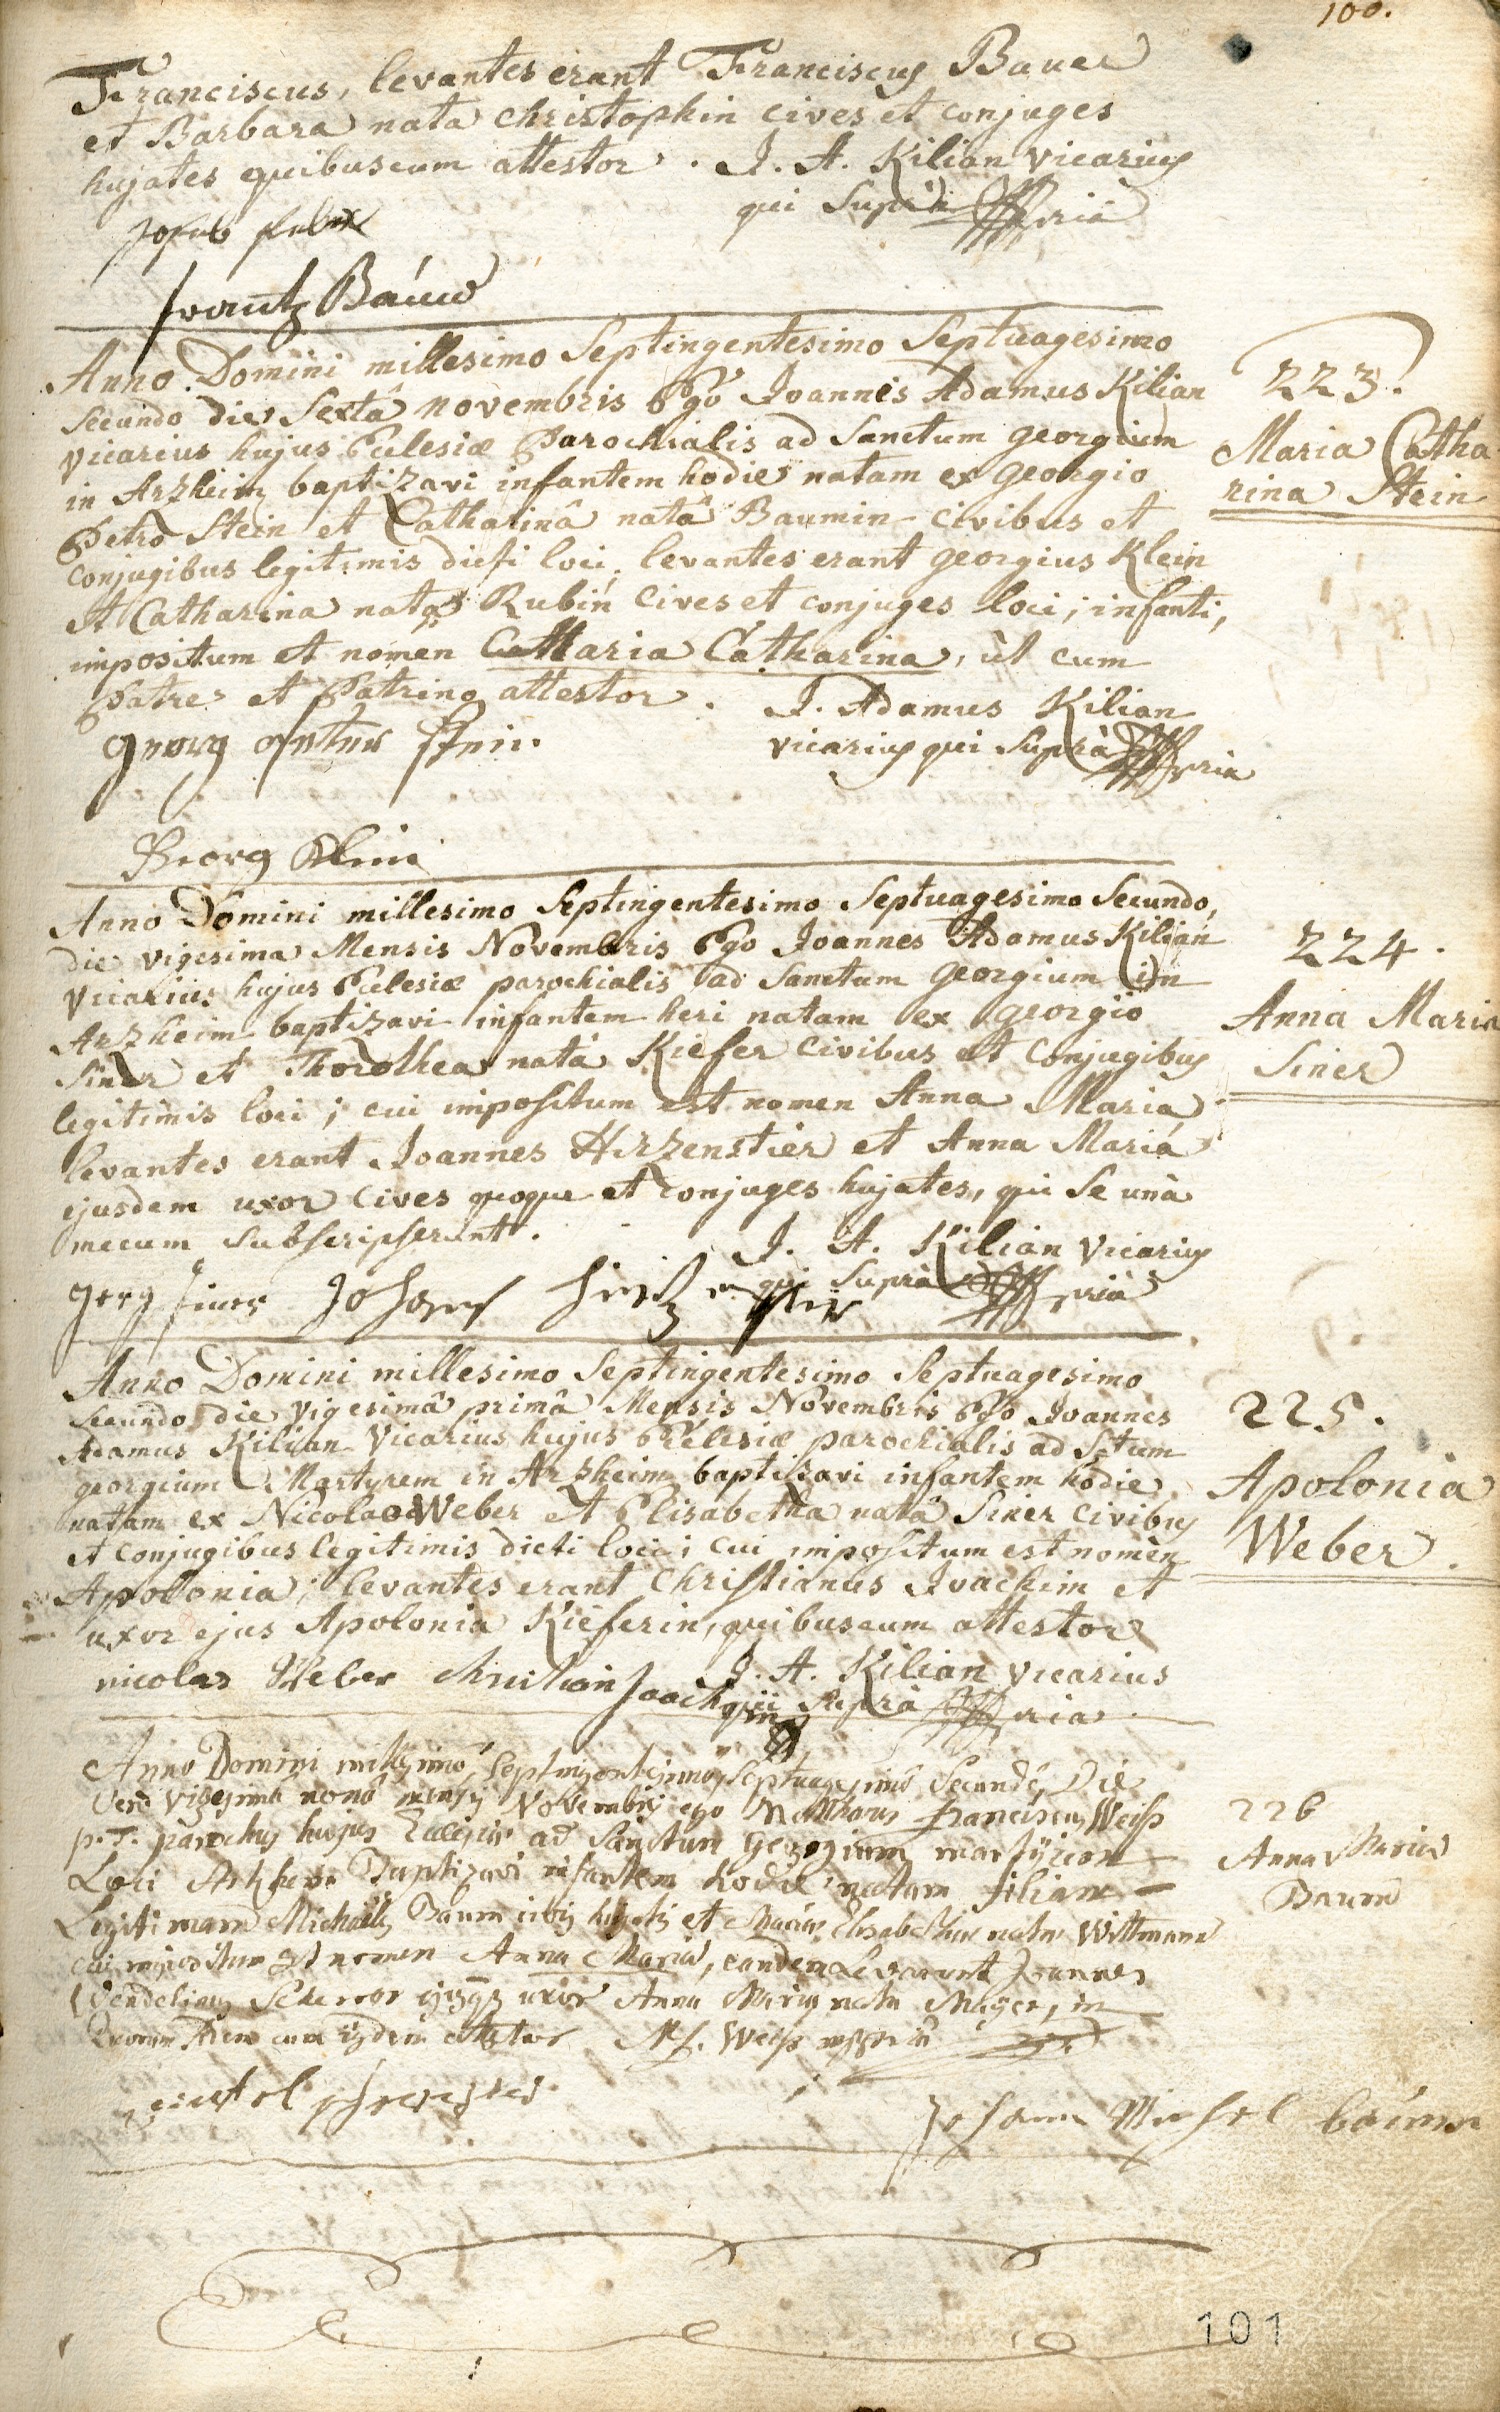 100.
Franciscus, levantes erant Franciscus Bauer
et Barbara nata Christophin cives et conjuges
hujates quibuscum attestor. J. A. Kilian vicarius
qui Suprà pria
Jacob
frantz Bauer
Anno Domini millesimo Septingentesimo Septuagesimo
Secundo die Sextâ novembris Ego Joannes Adamus Kilian
vicarius hujus Eclesiæ Parochialis ad Sanctum georgium
in Arzheim baptizavi infantem hodie natam ex georgio
Petro Stein et Catharinâ natâ Baumin civibus et
conjugibus legitimis dicti loci, levantes erant georgius Klein
et Catharina nata Rubin Cives et conjuges loci; infanti,
impositum et nomen Maria Catharina, ùt cum
Patre et Patrino attestor. J. Adamus Kilian
vicarius qui Suprà pria
georg peter stein
Georg Klein
223.
Maria Catha
rina Stein
Anno Domini millesimo Septingentesimo Septuagesimo Secundo,
die vigesima Mensis Novembris Ego Joannes Adamus Kilian
Vicarius hujus Eclesiæ parochialis ad Sanctum georgium in
Arzheim baptizavi infantem heri natam ex georgio
Siner et Thorothea natá Kiefer civibus et Conjugibus
legitimis loci; cui impositum est nomen Anna Maria
levantes erant Joannes Hirzenstier et Anna Maria
ejusdem uxor cives quoque et conjuges hujates, qui se unà
mecum Subscripserunt.
J. A. Kilian Vicarius
qui Suprà pria
Jerg siner Johanes
224.
Anna Maria
Siner
Anno Domini millesimo Septingentesimo Septuagesimo
Secundo die vigesimâ primâ Mensis Novembris Ego Joannes
Adamus Kilian Vicarius hujus Eclesiæ parochialis ad Sctum
georgium Martyrem in Arzheim baptizavi infantem hodie
natam ex Nicolao Weber et Elisabetha natâ Siner civibus
et Conjugibus legitimis dicti loci; cui impositum est nomen
Apolonia; levantes erant Christianus Joachim et
uxor ejus Apolonia Kieferin, quibuscum attestor
J. A. Kilian vicarius
qui Suprà pria
nicolas Weber Christian Joachim
225.
Apolonia
Weber
Anno Domini millesimo Septingentesimo Septuagesimo Secundo, Die
Vero vigesima nona mensis Novembris ego Matthaeus Franciscus Weiss
p. T. parochus hujus Ecclesiæ ad Sanctum Georgium martyrem
Loci Arzheim Baptizavi infantem hodie natam filiam
Legitimam Michaelis Baum civis hujatis et Mariæ Elisabethæ natæ Wittmann
cui impositum est nomen Anna Maria, eandem Levarunt Joannes
Wendelinus ejusque uxor Anna Maria nata Mayer, in
quorum fidem cum iisdem attestor M. f. Weiss mppria
Johann Michel baum
226
Anna Maria
Baum
101